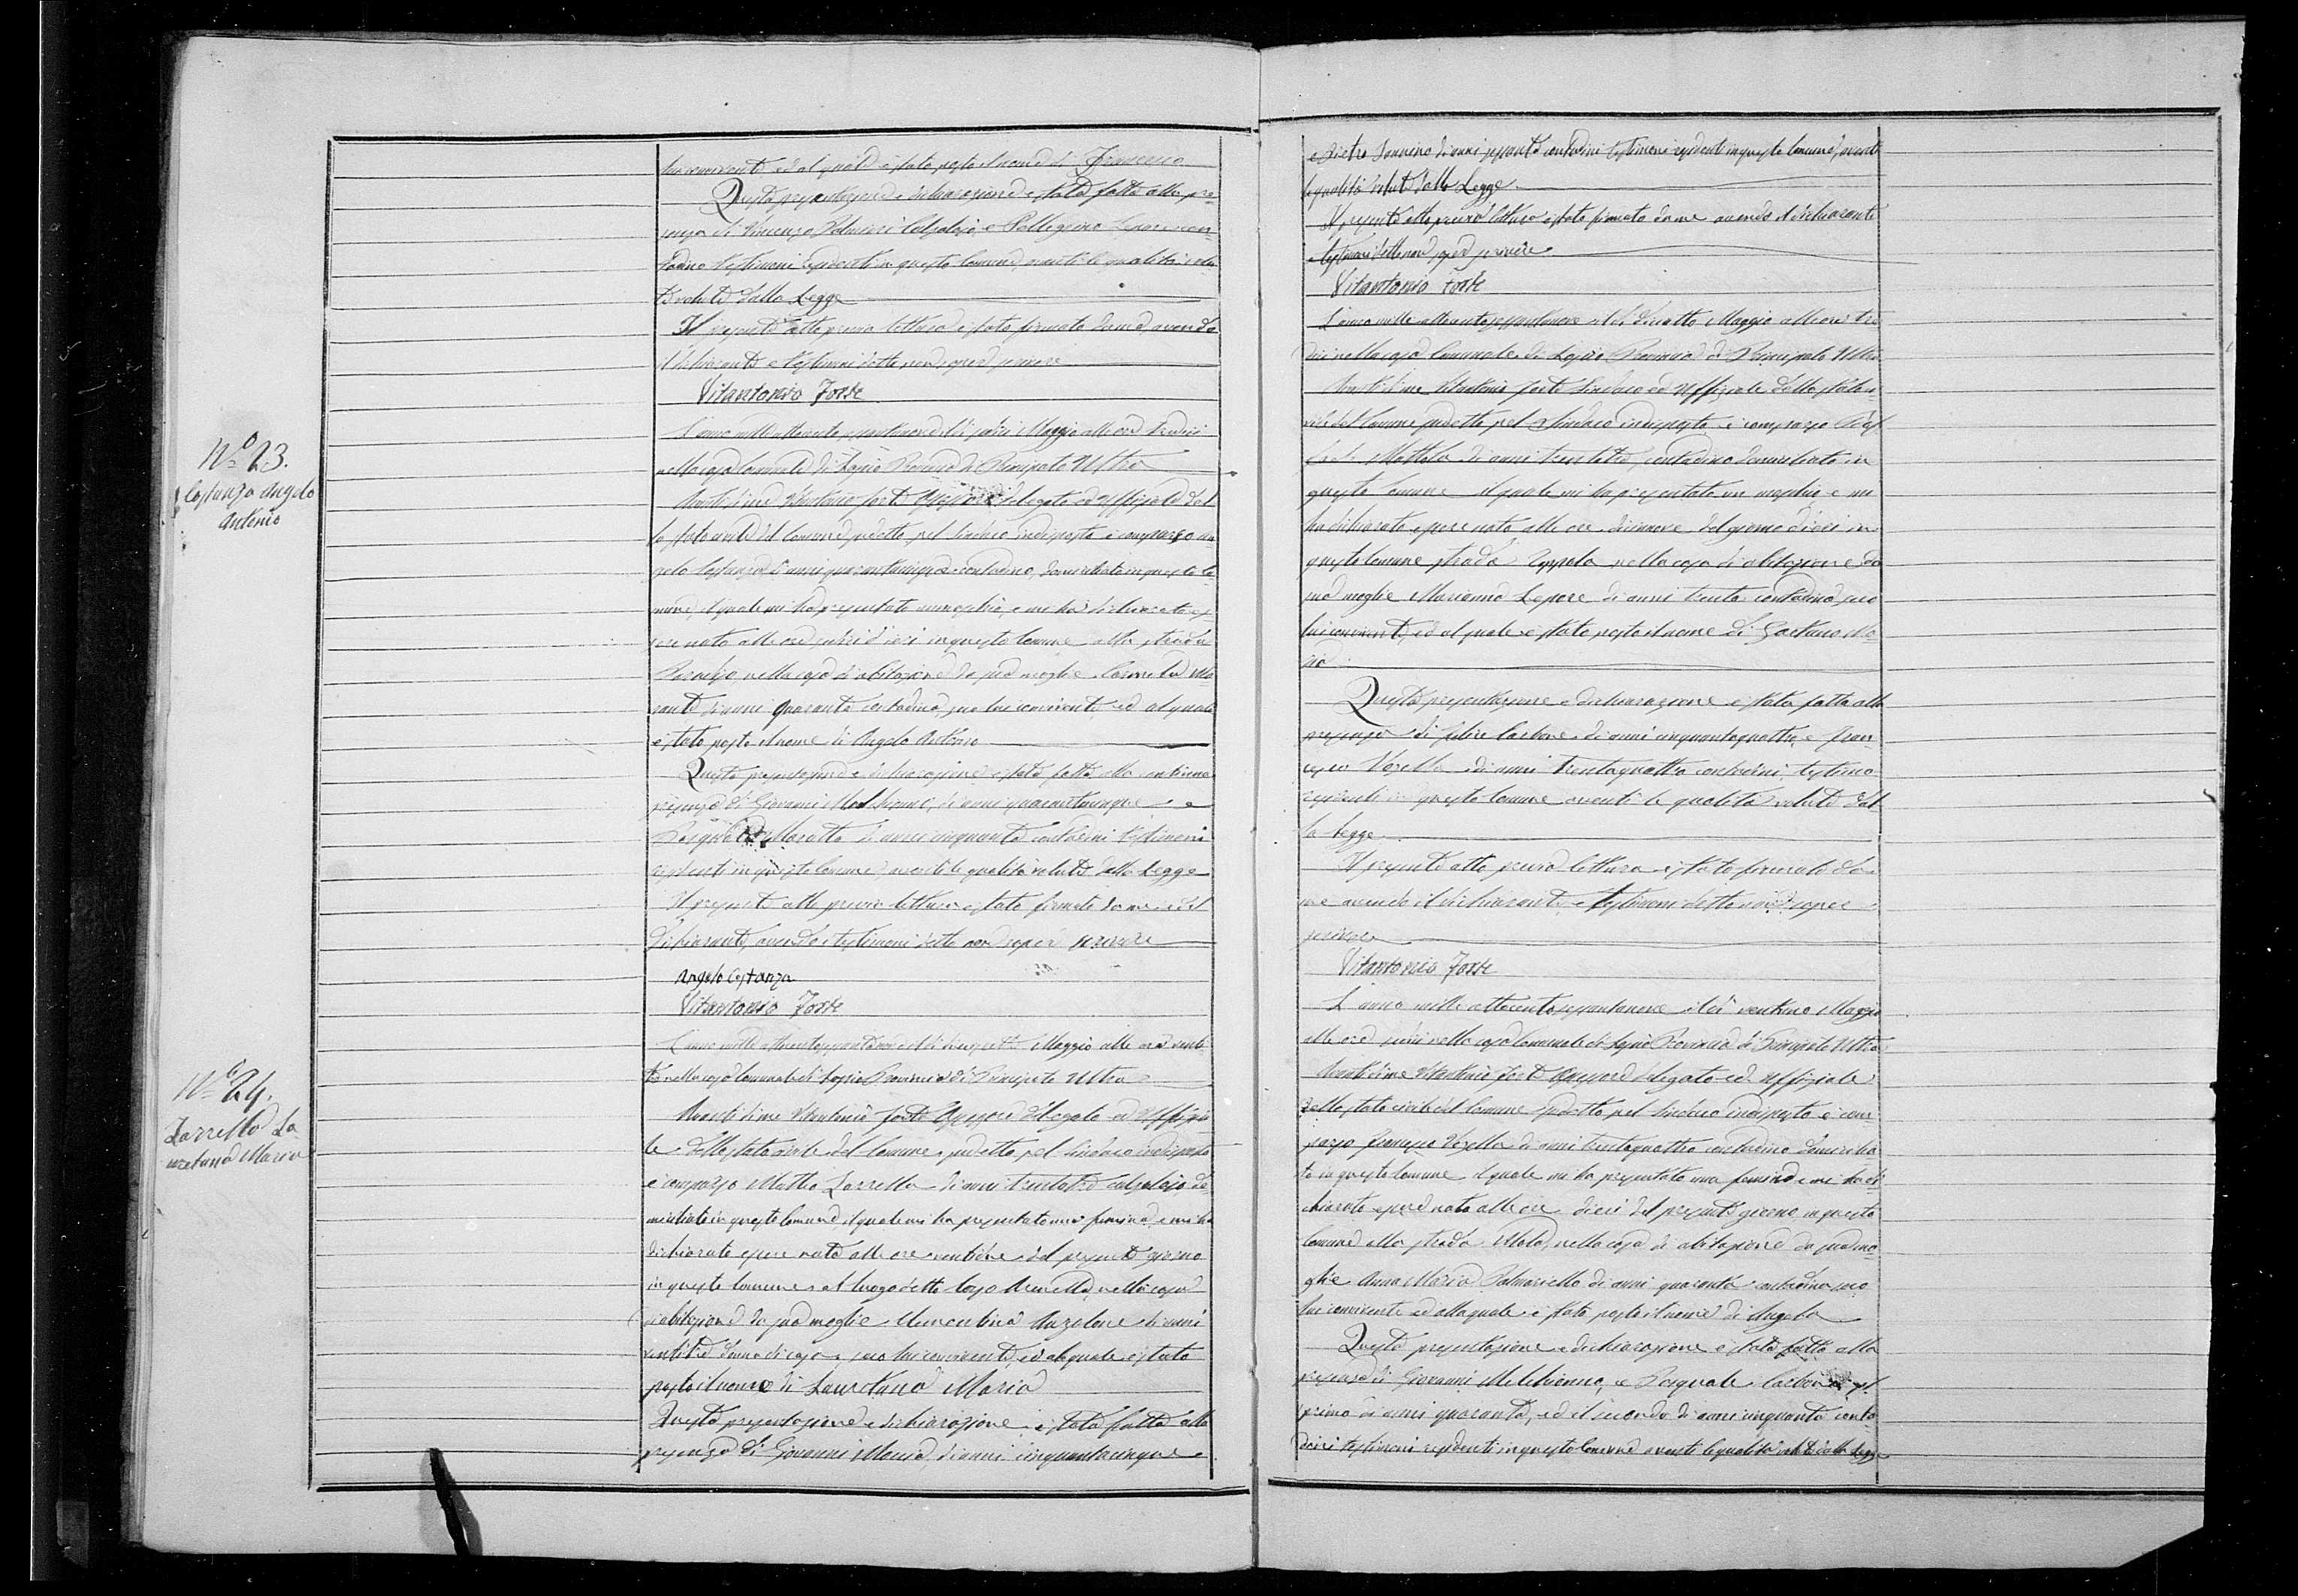 lui convivente ed al quale è stato posto il nome di Francesco
Questa presentazione e dichiarazione è stata fatta alla pre-
senza di Vincenzo Palmieri Calzolajo, e Pellegrino
testimoni residenti in questo Comune, aventi le qualità
volute dalla Legge
Il presente atto previa lettura è stato firmato da me avendo
il dichiarante e testimoni detto non saper scrivere
Vitantonio Forte
N.º 23.
Costanza Angelo
Antonio
L'anno mille ottocento settantanove il dì sedici Maggio alle ore tredici
nella casa Comunale di Lapio Provincia di Principato Ultra
Avanti di me Vitantonio Forte Assessore delegato ed Uffiziale del
lo stato civile del Comune suddetto, pel Sindaco indisposto è comparso An-
gelo Costanza di anni quarantacinque contadino, domiciliato in questo Co-
mune, il quale mi ha presentato un maschio, e mi ha dichiarato es-
sere nato alle ore sedici d'ieri in questo Comune alla strada
nella casa di abitazione da sua moglie Carmela Mo-
rante di anni quaranta contadina, seco lui convivente ed al quale
è stato posto il nome di Angelo Antonio
Questa presentazione e dichiarazione è stata fatta alla continua
presenza di Giovanni Melchionno, di anni quarantacinque e
Pasquale Moratto di anni cinquanta contadini testimoni
residenti in questo Comune, aventi le qualità volute dalla Legge
Il presente atto previa lettura è stato firmato da me ed il
dichiarante, avendo i testimoni detto non saper scrivere
Angelo Costanza
Vitantonio Forte
N.º 24.
Zarrella Lau
retana Maria
L'anno mille ottocento settantanove il dì diciassette Maggio alle ore venti
tre nella casa Comunale di Lapio Provincia di Principato Ultra
Avanti di me Vitantonio Forte Assessore delegato ed Uffizia
le dello stato civile del Comune suddetto, pel Sindaco indisposto
è comparso Mattia Zarrella di anni trentatre calzolajo do-
miciliato in questo Comune il quale mi ha presentato una femina, e mi ha
dichiarato essere nata alle ore ventidue del presente giorno
in questo Comune al luogo detto Largo nella casa
di abitazione da sua moglie Clementina Anzalone di anni
ventitre donna di casa, seco lui convivente, ed al quale è stato
posto il nome di Lauretana Maria
Questa presentazione e dichiarazione è stata fatta alla
presenza di Giovanni di anni cinquantacinque
e Pietro di anni sessanta contadini testimoni residenti in questo Comune, aventi
le qualità volute dalla Legge.
Il presente atto previa lettura è stato firmato da me avendo il dichiarante
e testimoni detto non saper scrivere
Vitantonio Forte
L'anno mille ottocento settantanove il dì diciotto Maggio alle ore tre
dici nella casa Comunale di Lapio Provincia di Principato Ultra
Avanti di me Vitantonio Forte Sindaco ed Uffiziale dello stato ci-
vile del Comune suddetto pel Sindaco indisposto è comparso
Mottola di anni trentatre, contadino domiciliato in
questo Comune il quale mi ha presentato un maschio e mi
ha dichiarato essere nato alle ore diciannove del giorno d'ieri in
questo Comune strada nella casa di abitazione da
sua moglie Marianna Lepore di anni trenta contadina, seco
lui convivente, ed al quale è stato posto il nome di Gaetano Ma-
ria
Questa presentazione e dichiarazione è stata fatta alla
presenza di Felice Carbone di anni cinquantaquattro, e Fran-
cesco Vozella di anni trentaquattro contadini, testimo-
residenti in questo Comune aventi le qualità volute dal-
la Legge
Il presente atto previa lettura è stato firmato da
me avendo il dichiarante e testimoni detto non saper
scrivere
Vitantonio Forte
L'anno mille ottocento settantanove il dì ventuno Maggio
alle ore sedici nella casa Comunale di Lapio Provincia di Principato Ultra
Avanti di me Vitantonio Forte Assessore delegato ed Uffiziale
dello stato civile del Comune suddetto pel Sindaco indisposto è com-
parso Francesco Vozella di anni trentaquattro contadino domicilia-
to in questo Comune il quale mi ha presentato una femina e mi ha di
chiarato essere nata alle ore dieci del presente giorno in questo
Comune alla strada nella casa di abitazione da sua mo-
glie Anna Maria Palmariello di anni quaranta contadina seco
lui convivente ed alla quale è stato posto il nome di Angela
Questa presentazione e dichiarazione è stata fatta alla
presenza di Giovanni Melchionno, e Pasquale Carbone il
primo di anni quaranta, ed il secondo di anni cinquanta conta-
dini testimoni residenti in questo Comune aventi le qualità volute dalla Legge